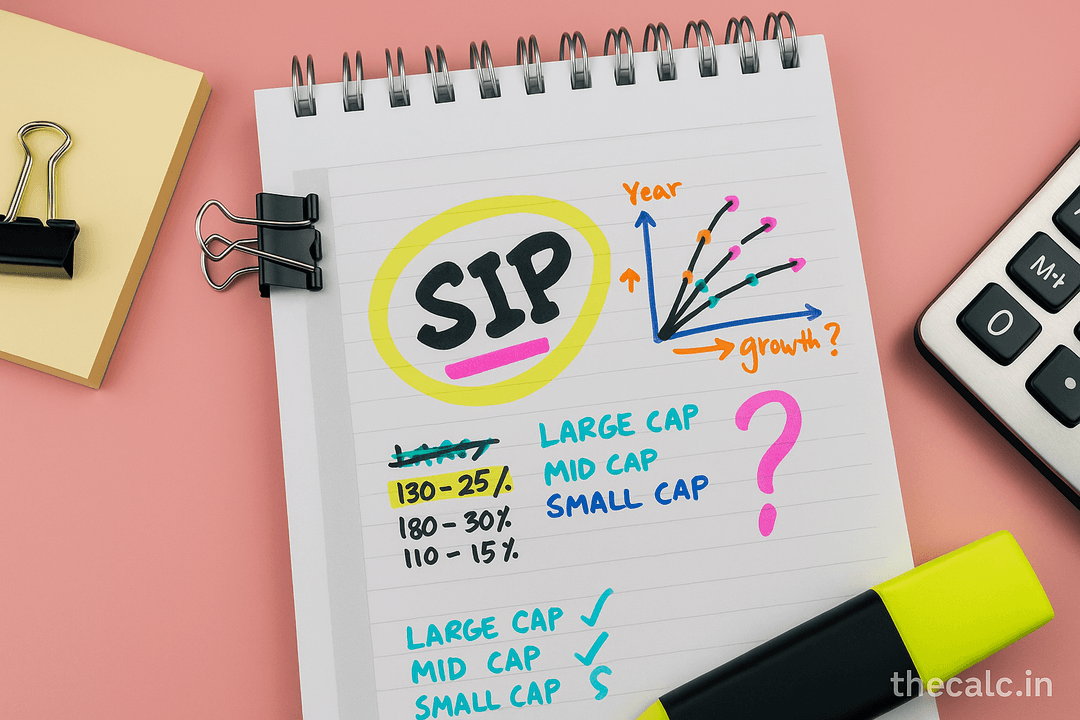 Year
SIP
growth?
130 - 25%
180 - 30%
110 - 15%
LARGE CAP
MID CAP
SMALL CAP
?
LARGE CAP ✓
MID CAP ✓
SMALL CAP S
0
M+
thecalc.in